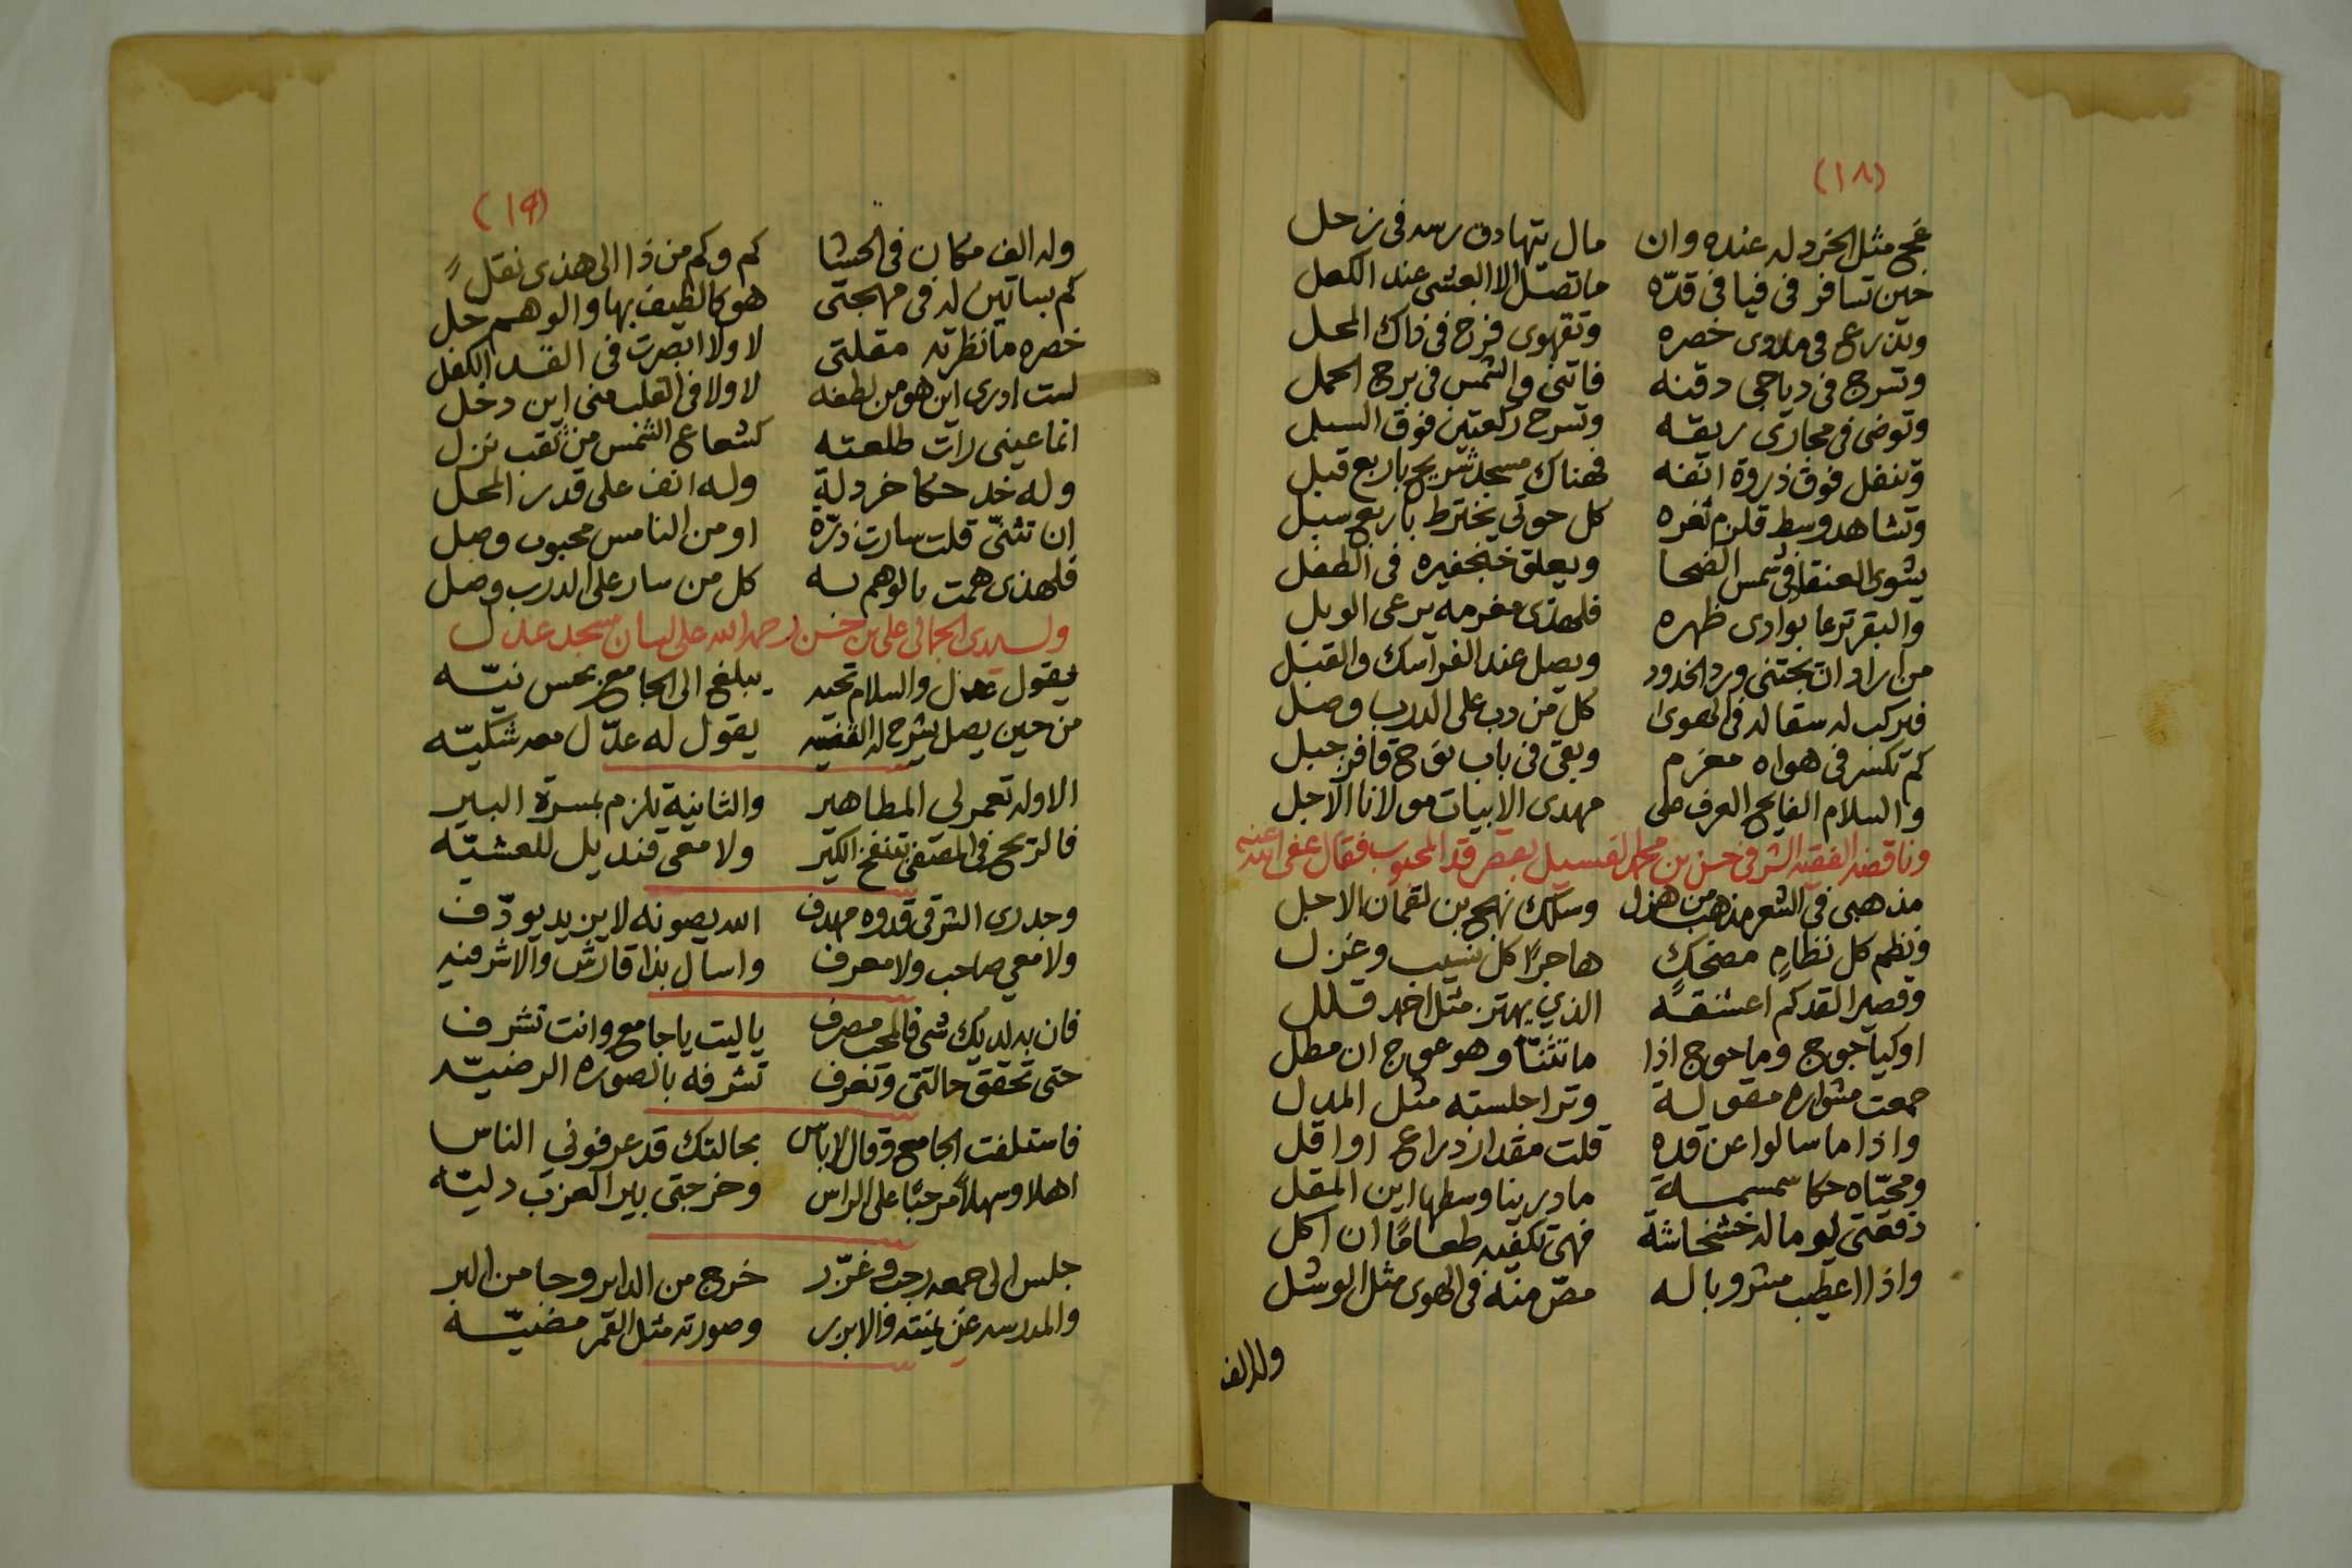 (١٨)
مثل الخردله عنده وان مال يتهادى في زحل
حين تسافر في فيافي قدّه ما تصل الا العشى عند الكعل
وتذرع في خصره وتقهوى في ذاك المحل
وتسرج في دياجى دقنه والشمس في برج الحمل
وتوضى في مجارى ريقه وتسرح ركعتين فوق السبل
وتنفل فوق ذروة انفه فهناك مسجد باربع قبل
وتشاهد وسط قلزم ثغره كل حوتي يخترط باربع سبل
يشوى العنقا في شمس الضحا ويعلق في الطفل
والبقر ترعا بوادى ظهره فلهذى مغرمه يرعى الوبل
من اراد ان يجتنى ورد الخدود ويصل عند الفرسك والقبل
فيركب له سقاله في الهوى كل من دب على الدرب وصل
كم تكسر في هواه مغرم وبقى في باب جبل
والسلام الفايح العرف على مهدى الابيات مولانا الاجل
وناقضه الفقيه الشرفي حسن بن محمد بقصر قد المحبوب فقال عفى الله عنه
مذهبى في الشعر مذهب من هزل وسلك نهج بن لقمان الاجل
ونظم كل نظام مضحك هاجرًا كل نسيب وغزل
وقصير القد كم اعشقه الذي يهتز مثل
اوكيأجوج وماجوج اذا ما تثنّا وهو عوج ان مطل
مشواره مقوله وترا جلسته مثل المدل
واذا ما سالوا عن قده قلت مقدار ذراع او اقل
ومحيّاه حكا سمسمه ما درينا وسطها اين المقل
لو ما له خشخاشة فهى تكفيه طعامًا ان اكل
واذا اعطيت مشروبا له مصّ منه في الهوى مثل الوشل
وله الف
(١٩)
وله الف مكان في الحشا كم وكم من ذا الى هذى نقل
كم بساتين له في مهجتى هو كالطيف بها والوهم حل
خصره ما نظرته مقلتى لا ولا ابصرت في القد الكفل
لست ادرى اين هو من لطفه لا ولا في القلب منى اين دخل
انما عينى رات طلعته كشعاع الشمس من ثقب نزل
وله خد حكا خردلة وله انف على قدر المحل
ان تثنّى قلت سارت ذرّة او من النامس محبوب وصل
فلهذى همت بالوهم به كل من سار على الدرب وصل
ولسيدى الجمالى على بن حسن رحمه الله على لسان مسجد عدل
يقول عدل والسلام تحيه يبلغ الى الجامع بحسن نيّه
من حين يصل يشرح له القضيه يقول له عدّل معه شكيّه
الاوله تعمر لى المطاهير والثانية يلزم بمسرة البير
فالريح في المصفى تنفخ الكير ولا معى قنديل للعشيّه
وجدرى الشرقى قدوه مهدف الله يصونه لاين يد يودّف
ولا معى صاحب ولا معرف واسال بذا قارش والاشرفيه
فان به لديك شى فالمحب مصرف يا ليت يا جامع وانت تشرف
حتى تحقق حالتى وتعرف تشرفه بالصوره الرضيّه
فاستلفت الجامع وقال لا باس بحالتك قد عرفونى الناس
اهلا وسهلا مرحبًا على الراس وخرجتى بير العزب دليّه
جلس الى جمعه رجب وغرّر خرج من الداير وجا من البر
والمدرسه عن يمنته والابرر وصورته مثل القمر مضيّه